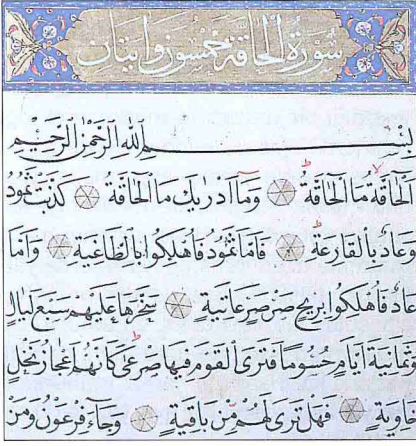 سُورَةُ الْحَاقَّةِ خَمْسُونَ وَاٰيَتَانِ
بِسْمِ اللّٰهِ الرَّحْمٰنِ الرَّحِيمِ
اَلْحَاقَّةُ مَا الْحَاقَّةُ وَمَٓا اَدْرٰيكَ مَا الْحَاقَّةُ كَذَّبَتْ ثَمُودُ
وَعَادٌ بِالْقَارِعَةِ فَاَمَّا ثَمُودُ فَاُهْلِكُوا بِالطَّاغِيَةِ وَاَمَّا
عَادٌ فَاُهْلِكُوا بِرِيحٍ صَرْصَرٍ عَاتِيَةٍ سَخَّرَهَا عَلَيْهِمْ سَبْعَ لَيَالٍ
وَثَمَانِيَةَ اَيَّامٍ حُسُومًا فَتَرَى الْقَوْمَ فِيهَا صَرْعٰى كَاَنَّهُمْ اَعْجَازُ نَخْلٍ
خَاوِيَةٍ فَهَلْ تَرٰى لَهُمْ مِنْ بَاقِيَةٍ وَجَٓاءَ فِرْعَوْنُ وَمَنْ